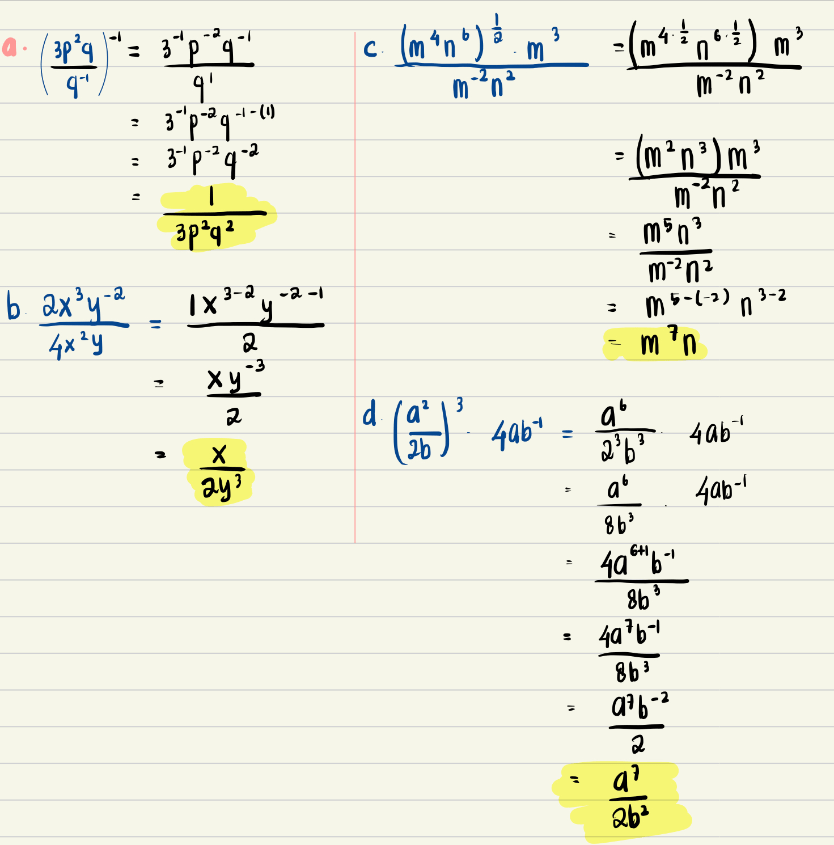 a. (3p²q / q⁻¹)⁻¹ = 3⁻¹p⁻²q⁻¹ / q¹
= 3⁻¹p⁻²q⁻¹⁻⁽¹⁾
= 3⁻¹p⁻²q⁻²
= 1 / 3p²q²
b. 2x³y⁻² / 4x²y = 1x³⁻²y⁻²⁻¹ / 2
= xy⁻³ / 2
= x / 2y³
c. (m⁴n⁶)^(1/2) · m³ / m⁻²n² = (m^(4·1/2) n^(6·1/2)) m³ / m⁻²n²
= (m²n³)m³ / m⁻²n²
= m⁵n³ / m⁻²n²
= m⁵⁻⁽⁻²⁾ n³⁻²
= m⁷n
d. (a² / 2b)³ · 4ab⁻¹ = a⁶ / 2³b³ · 4ab⁻¹
= a⁶ / 8b³ · 4ab⁻¹
= 4a⁶⁺¹b⁻¹ / 8b³
= 4a⁷b⁻¹ / 8b³
= a⁷b⁻² / 2
= a⁷ / 2b²